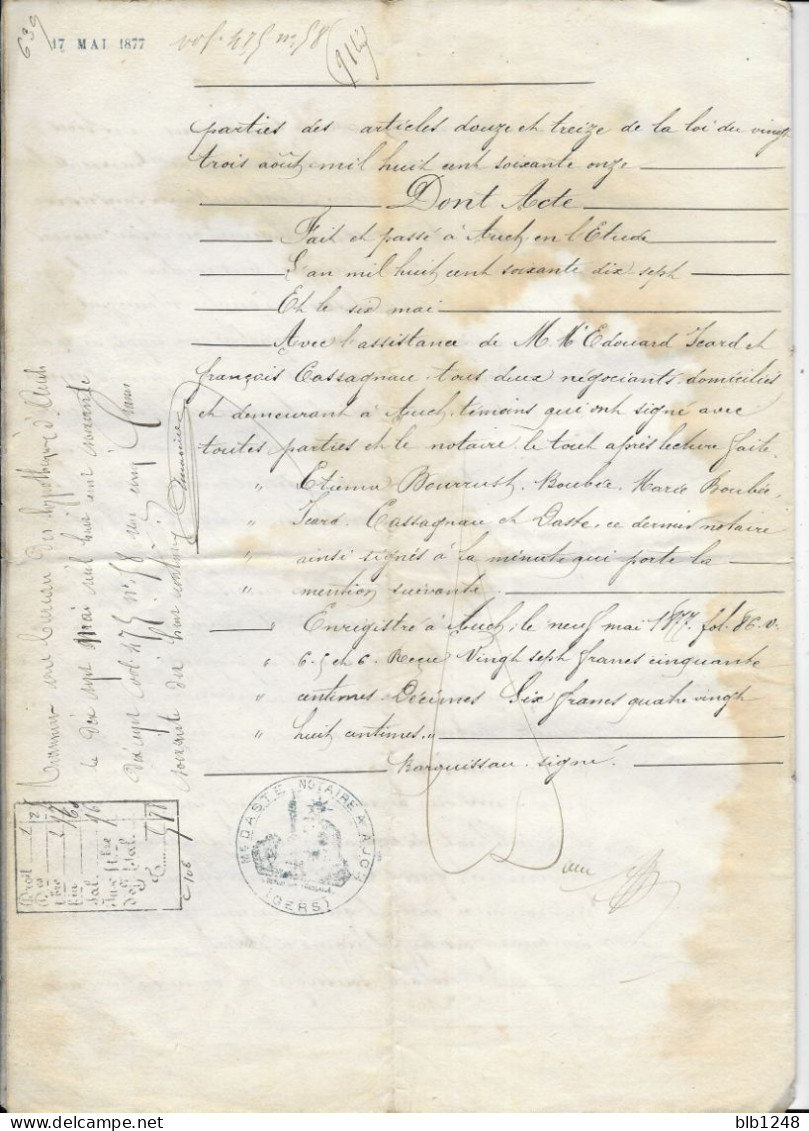 639
17 MAI 1877
vol. 475 n° 58
parties des articles douze et treize de la loi du vingt
trois août mil huit cent soixante onze
Dont Acte
Fait et passé à Auch en l'Etude
L'an mil huit cent soixante dix sept
Et le six mai
Avec l'assistance de M Mrs Edouard Icard et
françois Cassagnau tous deux négociants domiciliés
et demeurant à Auch, témoins qui ont signé avec
toutes parties et le notaire le tout après lecture faite.
" Etienne Bourrust, Boubée, Marie Boubée,
" Icard, Cassagnau et Daste, ce dernier notaire
" ainsi signés à la minute qui porte la
" mention suivante.
" Enregistré à Auch, le neuf mai 1877, fol. 86. v.
" c. 5 et 6. Reçu Vingt sept francs cinquante
" centimes. Décimes Six francs quatre vingt
" huit centimes. "
Barquissau signé.
au bureau des hypothèques d'Auch
le dix sept Mai mil huit cent soixante
dix sept vol. 475 n° 58 cinq francs
soixante dix huit centimes
Droit
Sal.
Me DASTE NOTAIRE A AUCH
(GERS)
blb1248